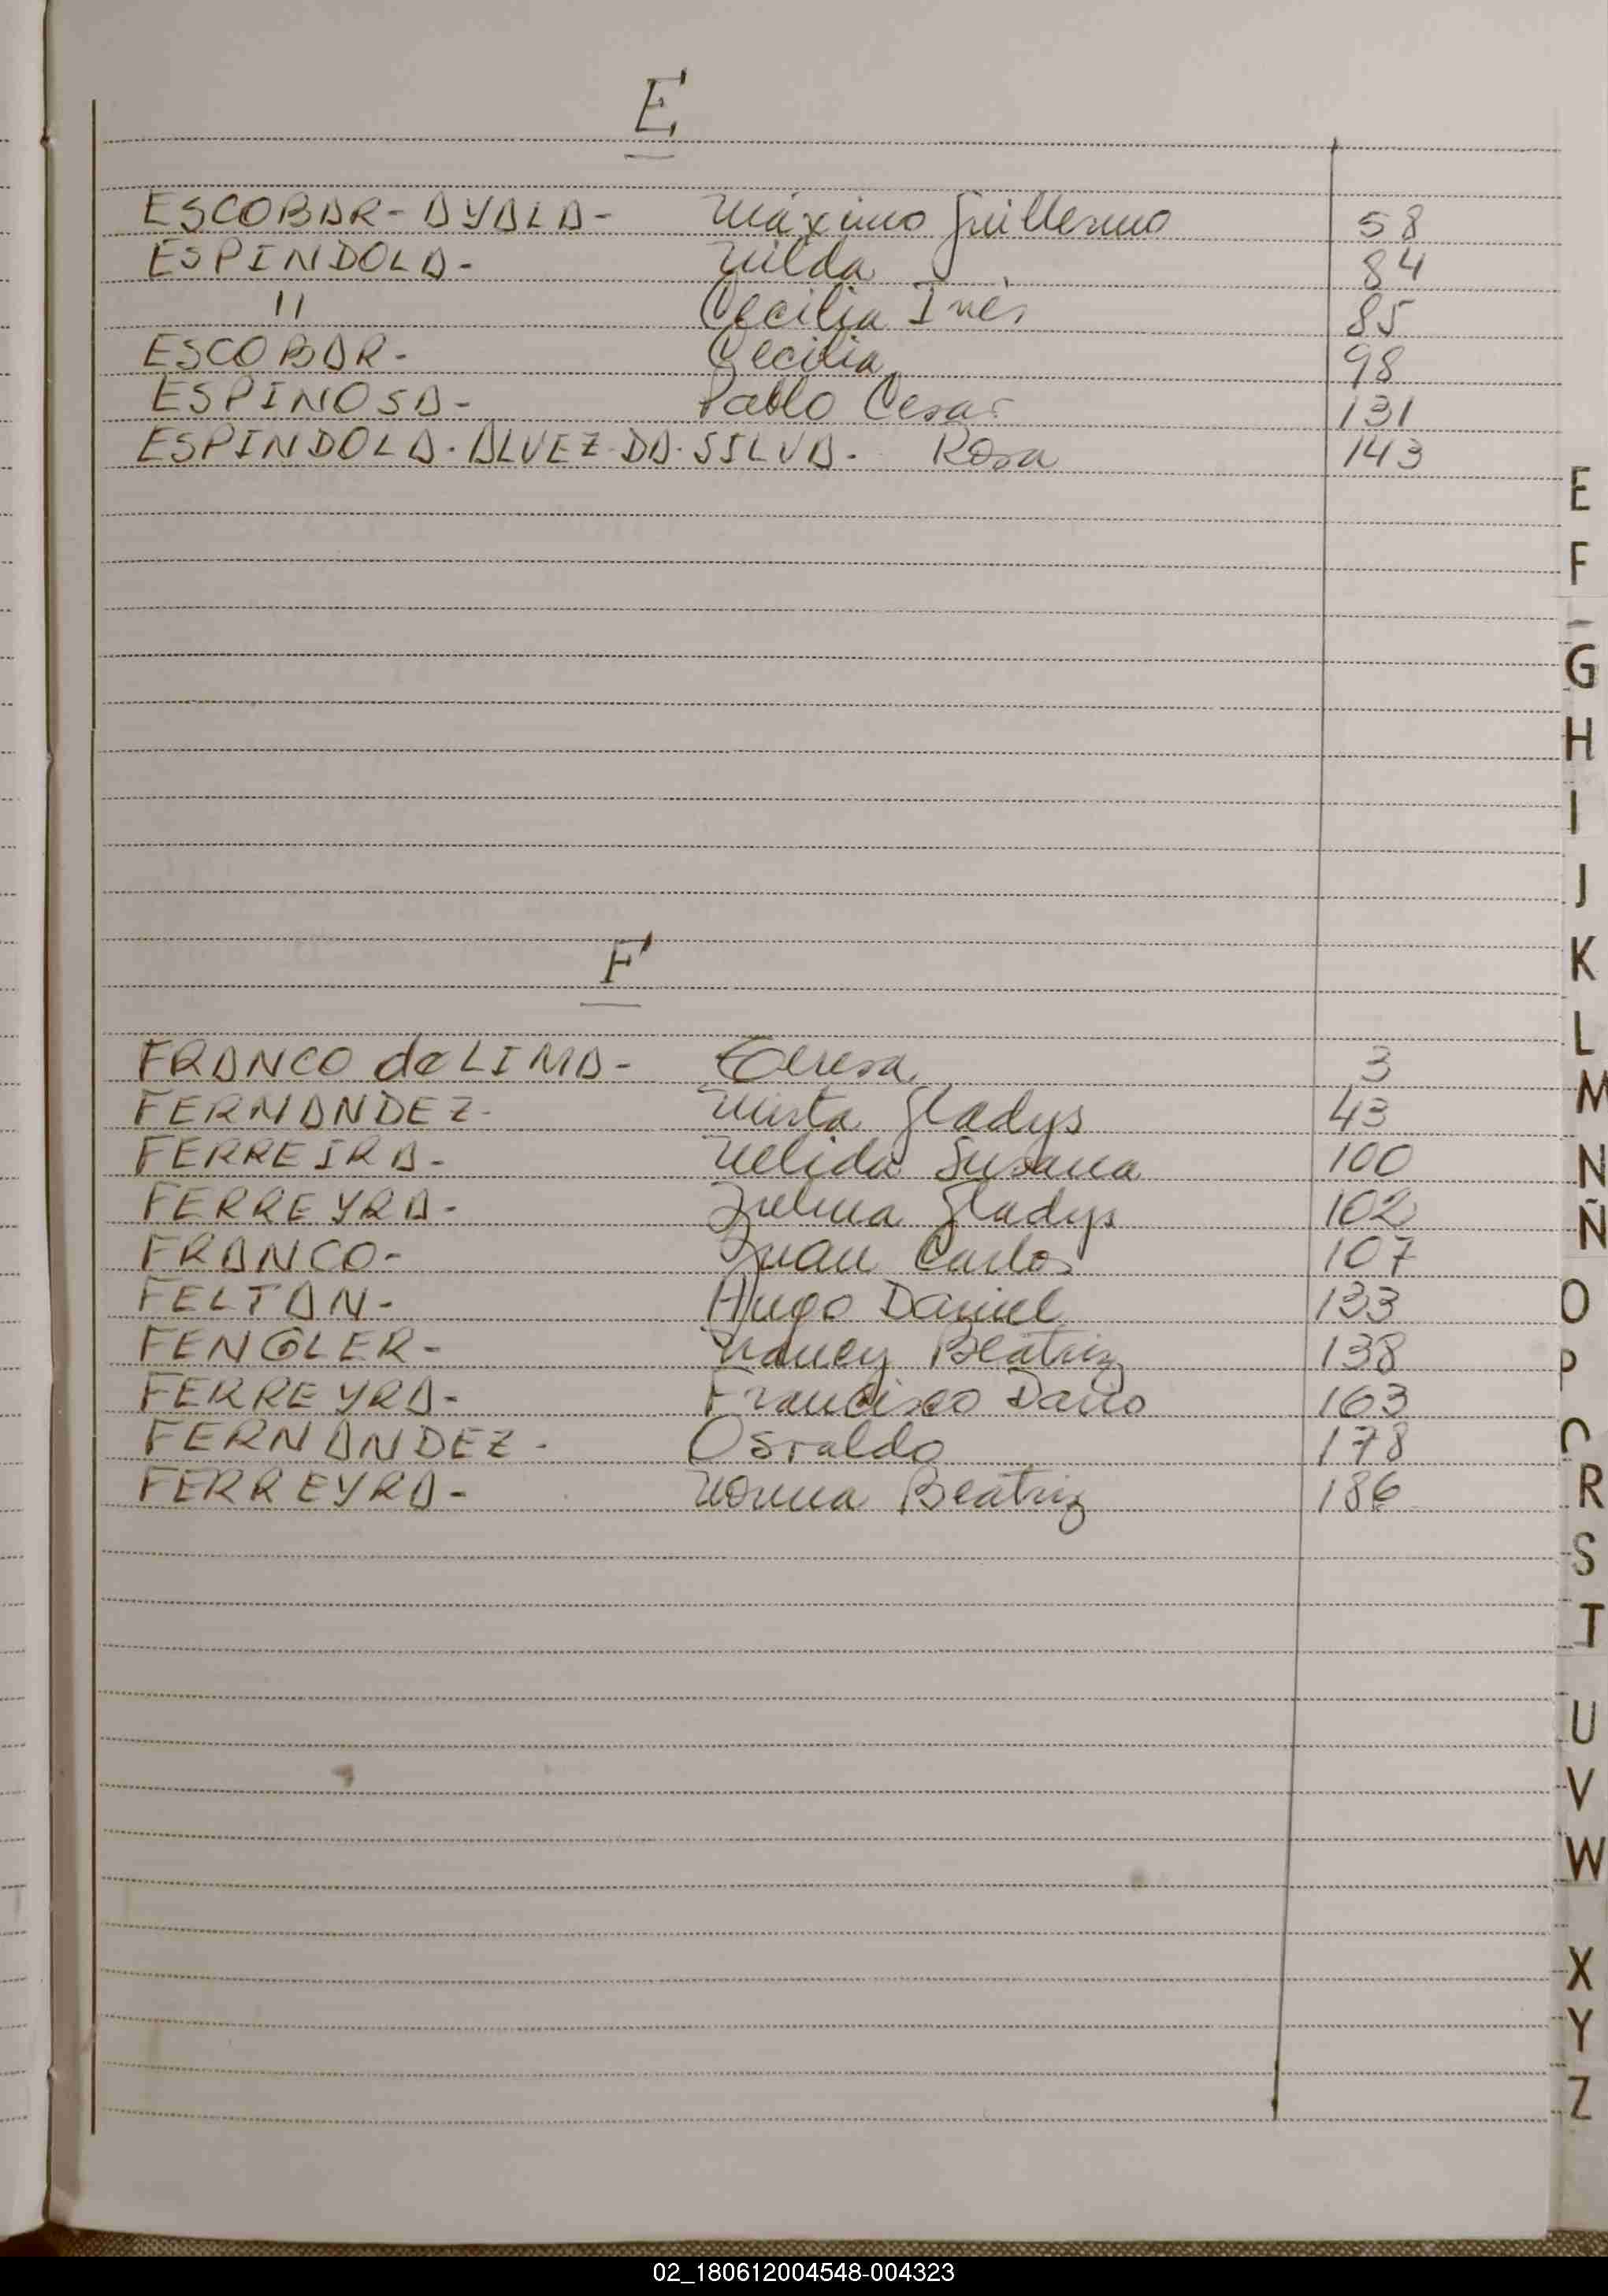 E
ESCOBAR-AYALA- Máximo Guillermo 58
ESPINDOLA- Nilda 84
" Cecilia Inés 85
ESCOBAR- Cecilia 98
ESPINOSA- Pablo Cesar 131
ESPINDOLA-ALVEZ-DA-SILVA- Rosa 143
F
FRANCO de LIMA- Teresa 3
FERNANDEZ- Mirta Gladys 43
FERREIRA- Nelida Susana 100
FERREYRA- Zulma Gladys 102
FRANCO- Juan Carlos 107
FELTAN- Hugo Daniel 133
FENGLER- Nancy Beatriz 138
FERREYRA- Francisco Dario 163
FERNANDEZ- Osvaldo 178
FERREYRA- Norma Beatriz 186
E
F
G
H
I
J
K
L
M
N
Ñ
O
P
R
S
T
U
V
W
X
Y
Z
02_180612004548-004323